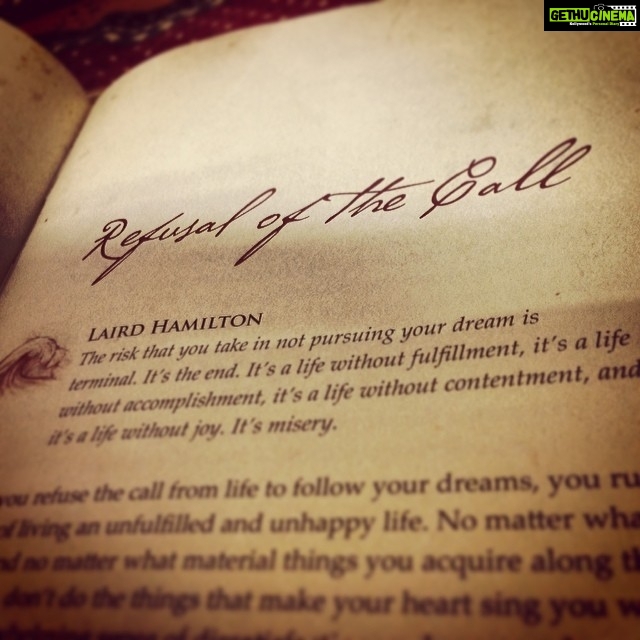 GETHUCINEMA
Refusal of the Call
LAIRD HAMILTON
The risk that you take in not pursuing your dream is
terminal. It's the end. It's a life without fulfillment, it's a life
without accomplishment, it's a life without contentment, and
it's a life without joy. It's misery.
you refuse the call from life to follow your dreams, you ru
of living an unfulfilled and unhappy life. No matter wha
nd no matter what material things you acquire along th
don't do the things that make your heart sing you w